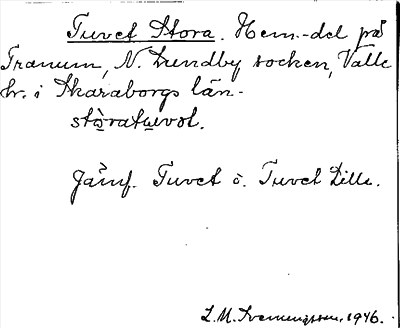 Tuvet Stora. Hem.-del på
Tranum, N. Lundby socken, Valle
hr. i Skaraborgs län.
stòratuvət.
Jämf. Tuvet o. Tuvet Lilla.
L. M. Svenungsson, 1946.